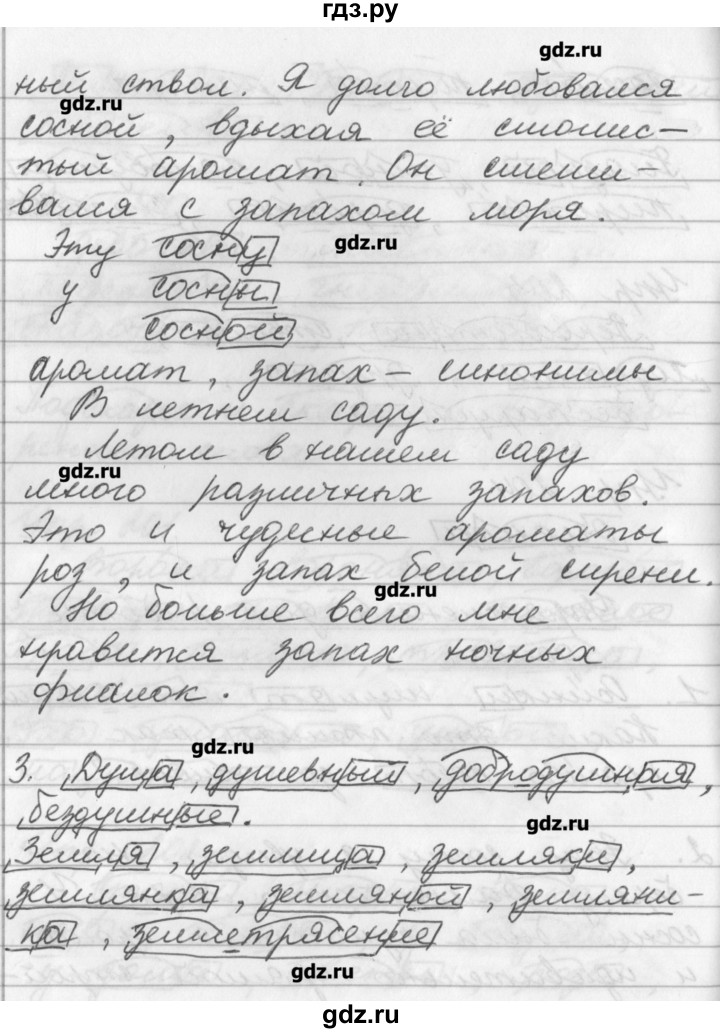 гдз.ру
gdz.ru
ный ствол. Я долго любовался
gdz.ru
сосной, вдыхая её смолис-
тый аромат. Он смеши-
вался с запахом моря.
Эту сосну gdz.ru
у сосны
сосной
аромат, запах – синонимы
В летнем саду.
Летом в нашем саду
gdz.ru
много различных запахов.
Это и чудесные ароматы
роз, и запах белой сирени.
gdz.ru
Но больше всего мне
нравится запах ночных
фиалок.
gdz.ru
3. Душа, душевный, добродушная,
бездушные.
gdz.ru
Земля, землица, земляки,
землянка, земляной, земляни-
ка, землетрясение
gdz.ru
gdz.ru